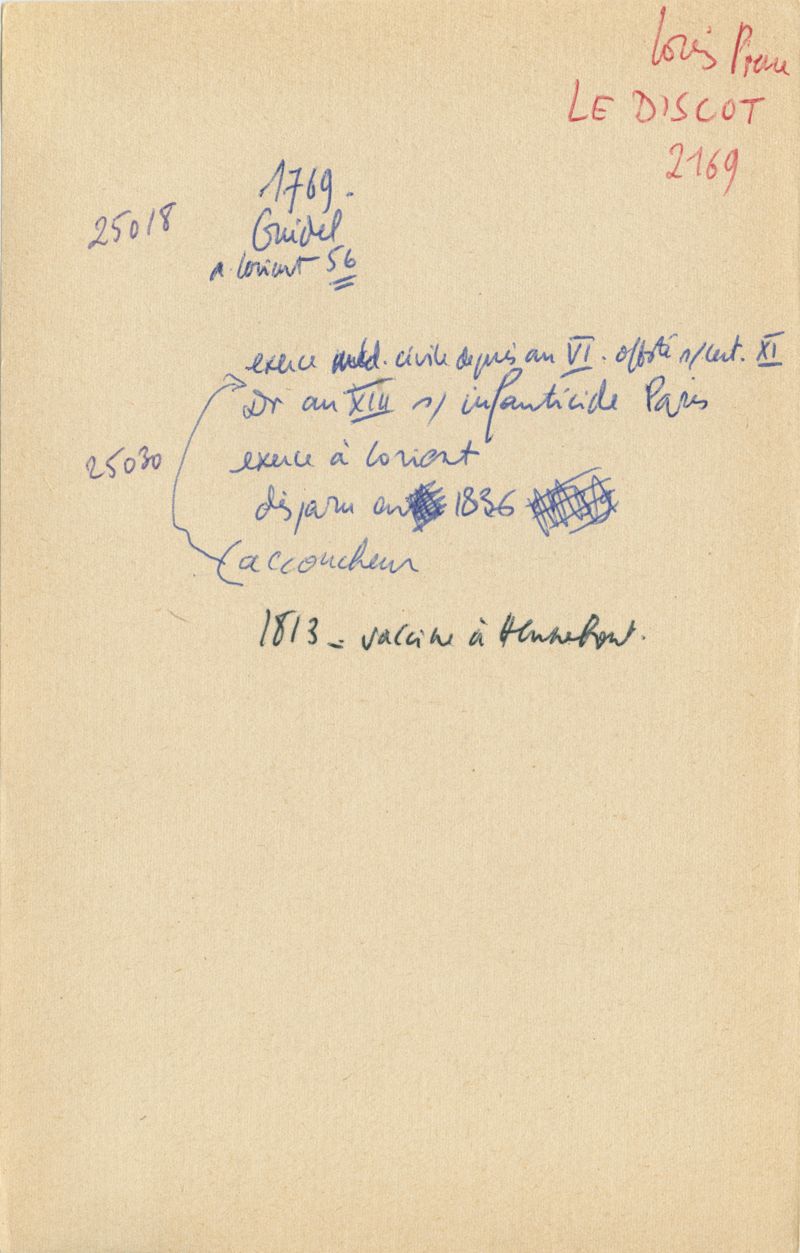 Louis Pierre
LE DISCOT
2169
1769.
25018
Guidel
a. Lorient 56
exerce méd. civile depuis an VI. s/cert. XI
Dr an XIII s/ infanticide Paris
25030
exerce à Lorient
disparu en 1836
(accoucheur
1813 - vaccine à Hennebont.